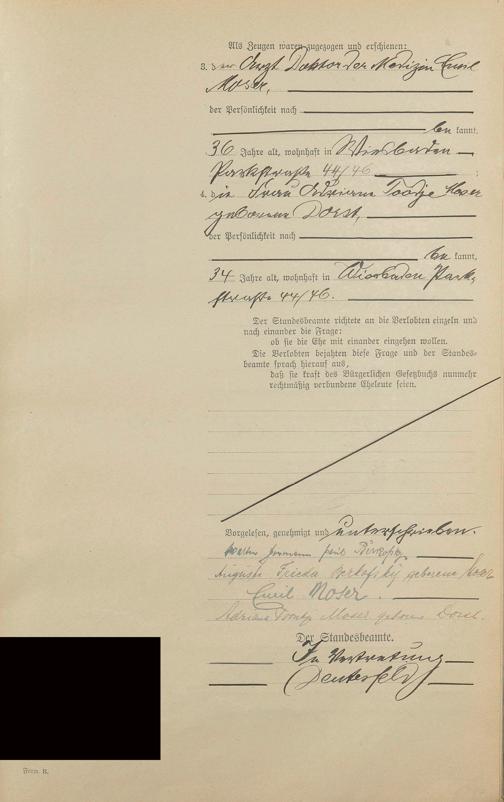 Als Zeugen waren zugezogen und erschienen:
3. der Arzt Doktor der Medizin Emil
Moser,
der Persönlichkeit nach
be kannt,
36 Jahre alt, wohnhaft in Wiesbaden
Parkstraße 44/46 ;
4. die Frau Adriane Moser
geborene Dorst,
der Persönlichkeit nach
be kannt,
34 Jahre alt, wohnhaft in Wiesbaden Park-
straße 44/46.
Der Standesbeamte richtete an die Verlobten einzeln und
nach einander die Frage:
ob sie die Ehe mit einander eingehen wollen.
Die Verlobten bejahten diese Frage und der Standes-
beamte sprach hierauf aus,
daß sie kraft des Bürgerlichen Gesetzbuchs nunmehr
rechtmäßig verbundene Eheleute seien.
Vorgelesen, genehmigt und unterschrieben.
Hermann Paul
Auguste Frieda geborene Moser
Emil Moser.
Moser geborene Dorst.
Der Standesbeamte.
In Vertretung
Form. B.